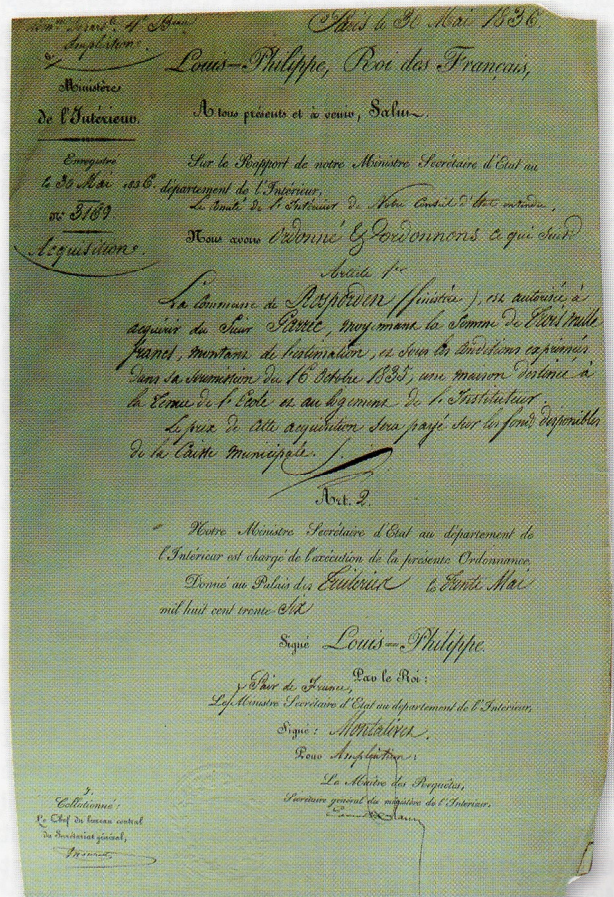 4e Bureau
Ampliation.
Paris le 30 Mai 1836.
Louis-Philippe, Roi des Français,
Ministère
de l'Intérieur.
A tous présents et à venir, Salut.
Enregistré
le 30 Mai 1836.
no 3169
Acquisition.
Sur le Rapport de notre Ministre Secrétaire d'Etat au
département de l'Intérieur,
Le Comité de l'Intérieur de Notre Conseil d'Etat entendu,
Nous avons ordonné & Ordonnons ce qui suit
Article 1er
La Commune de Rosporden (finistère), est autorisée à
acquérir du Sieur, moyennant la Somme de trois mille
francs, montant de l'estimation, et sous les conditions exprimées
dans sa soumission du 16 Octobre 1835, une maison destinée à
la tenue de l'Ecole et au logement de l'Instituteur.
Le prix de cette acquisition sera payé sur les fonds disponibles
de la Caisse municipale.
Art. 2.
Notre Ministre Secrétaire d'Etat au département de
l'Intérieur est chargé de l'exécution de la présente Ordonnance.
Donné au Palais des Tuileries le trente Mai
mil huit cent trente Six
Signé Louis-Philippe.
Par le Roi:
Pair de France,
Le Ministre Secrétaire d'Etat au département de l'Intérieur,
Signé: Montalivet.
Pour Ampliation:
Le Maître des Requêtes,
Secrétaire général du ministère de l'Intérieur.
Collationné:
Le Chef du bureau central
du Secrétariat général,